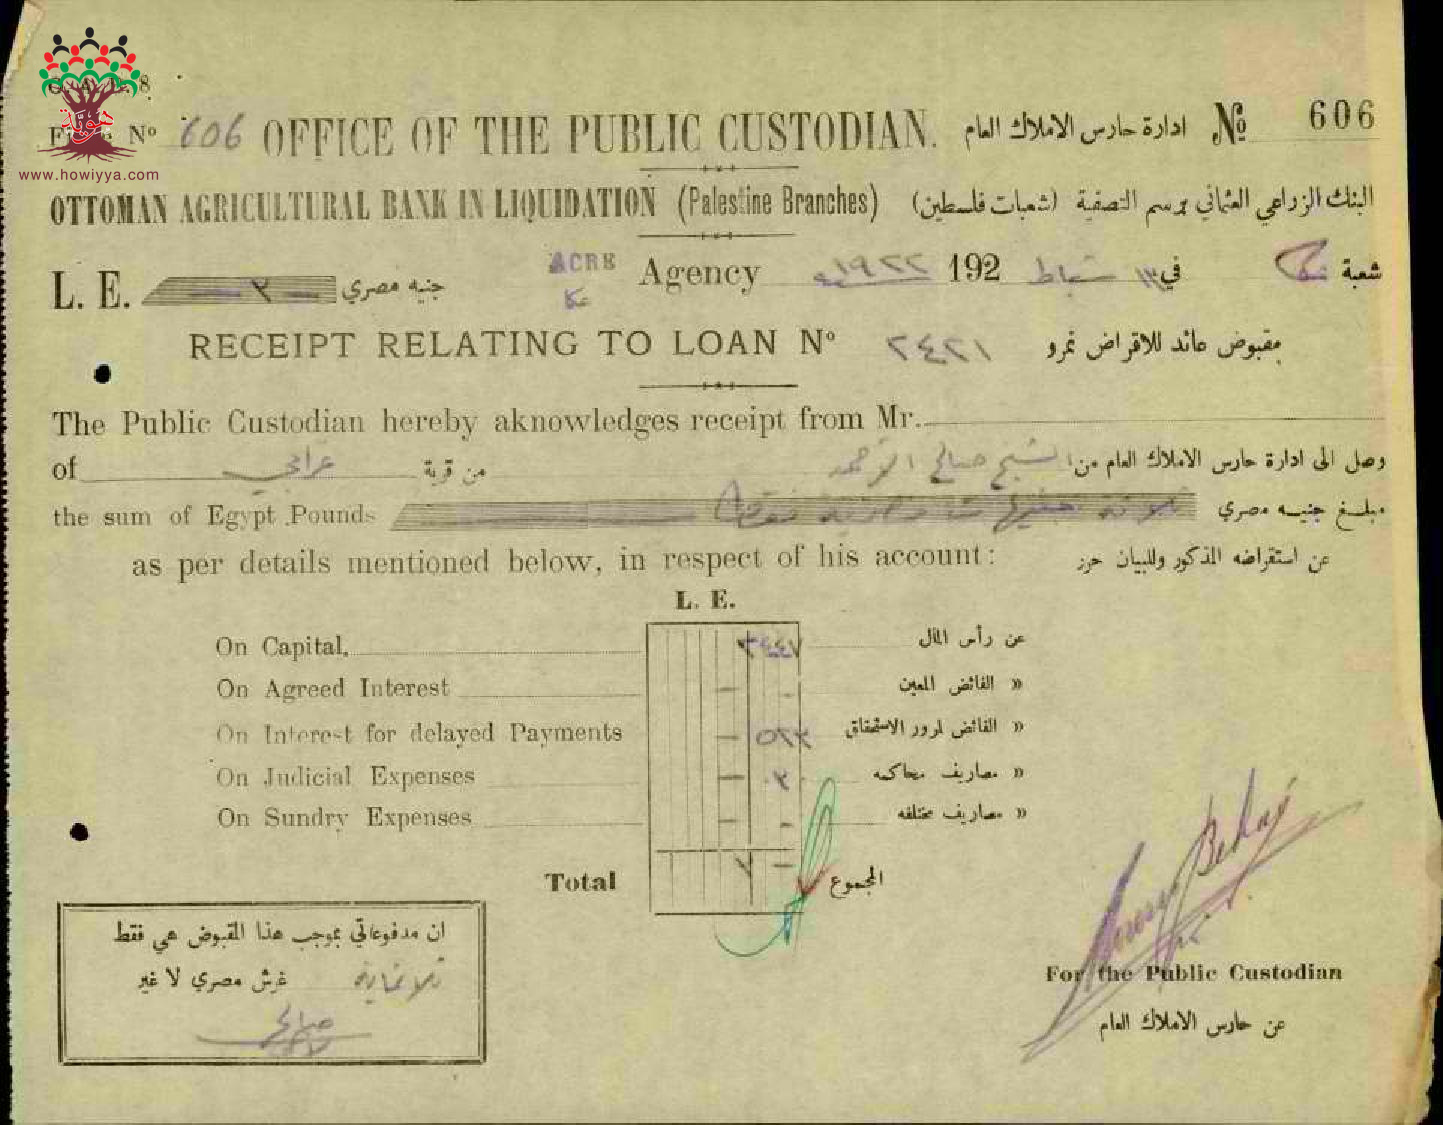 هوية
www.howiyya.com
Nº 606 OFFICE OF THE PUBLIC CUSTODIAN. ادارة حارس الاملاك العام Nº 606
OTTOMAN AGRICULTURAL BANK IN LIQUIDATION (Palestine Branches) البنك الزراعي العثماني برسم التصفية (شعبات فلسطين)
L. E. — ٣ — جنيه مصري ACRE عكا Agency ١٩٢٢ 192 في ١٣ شباط شعبة عكا
RECEIPT RELATING TO LOAN Nº ٢٤٢١ مقبوض عائد للاقراض نمرو
The Public Custodian hereby aknowledges receipt from Mr.
وصل الى ادارة حارس الاملاك العام من الشيخ صالح الاحمد
of من قرية عرابي
the sum of Egypt Pounds ثلاثة جنيهات فقط مبلغ جنيه مصري
as per details mentioned below, in respect of his account : عن استقراضه المذكور وللبيان حرر
L. E.
On Capital, ٣٤٤٧ عن رأس المال
On Agreed Interest — - الفائض المعين »
On Interest for delayed Payments — ٥٢٣ الفائض لمرور الاستحقاق »
On Judicial Expenses — مصاريف محاكمه »
On Sundry Expenses — - مصاريف مختلفه »
Total المجموع
ان مدفوعاتي بموجب هذا المقبوض هي فقط
ثلاثماية غرش مصري لا غير
صالح
For the Public Custodian
عن حارس الاملاك العام